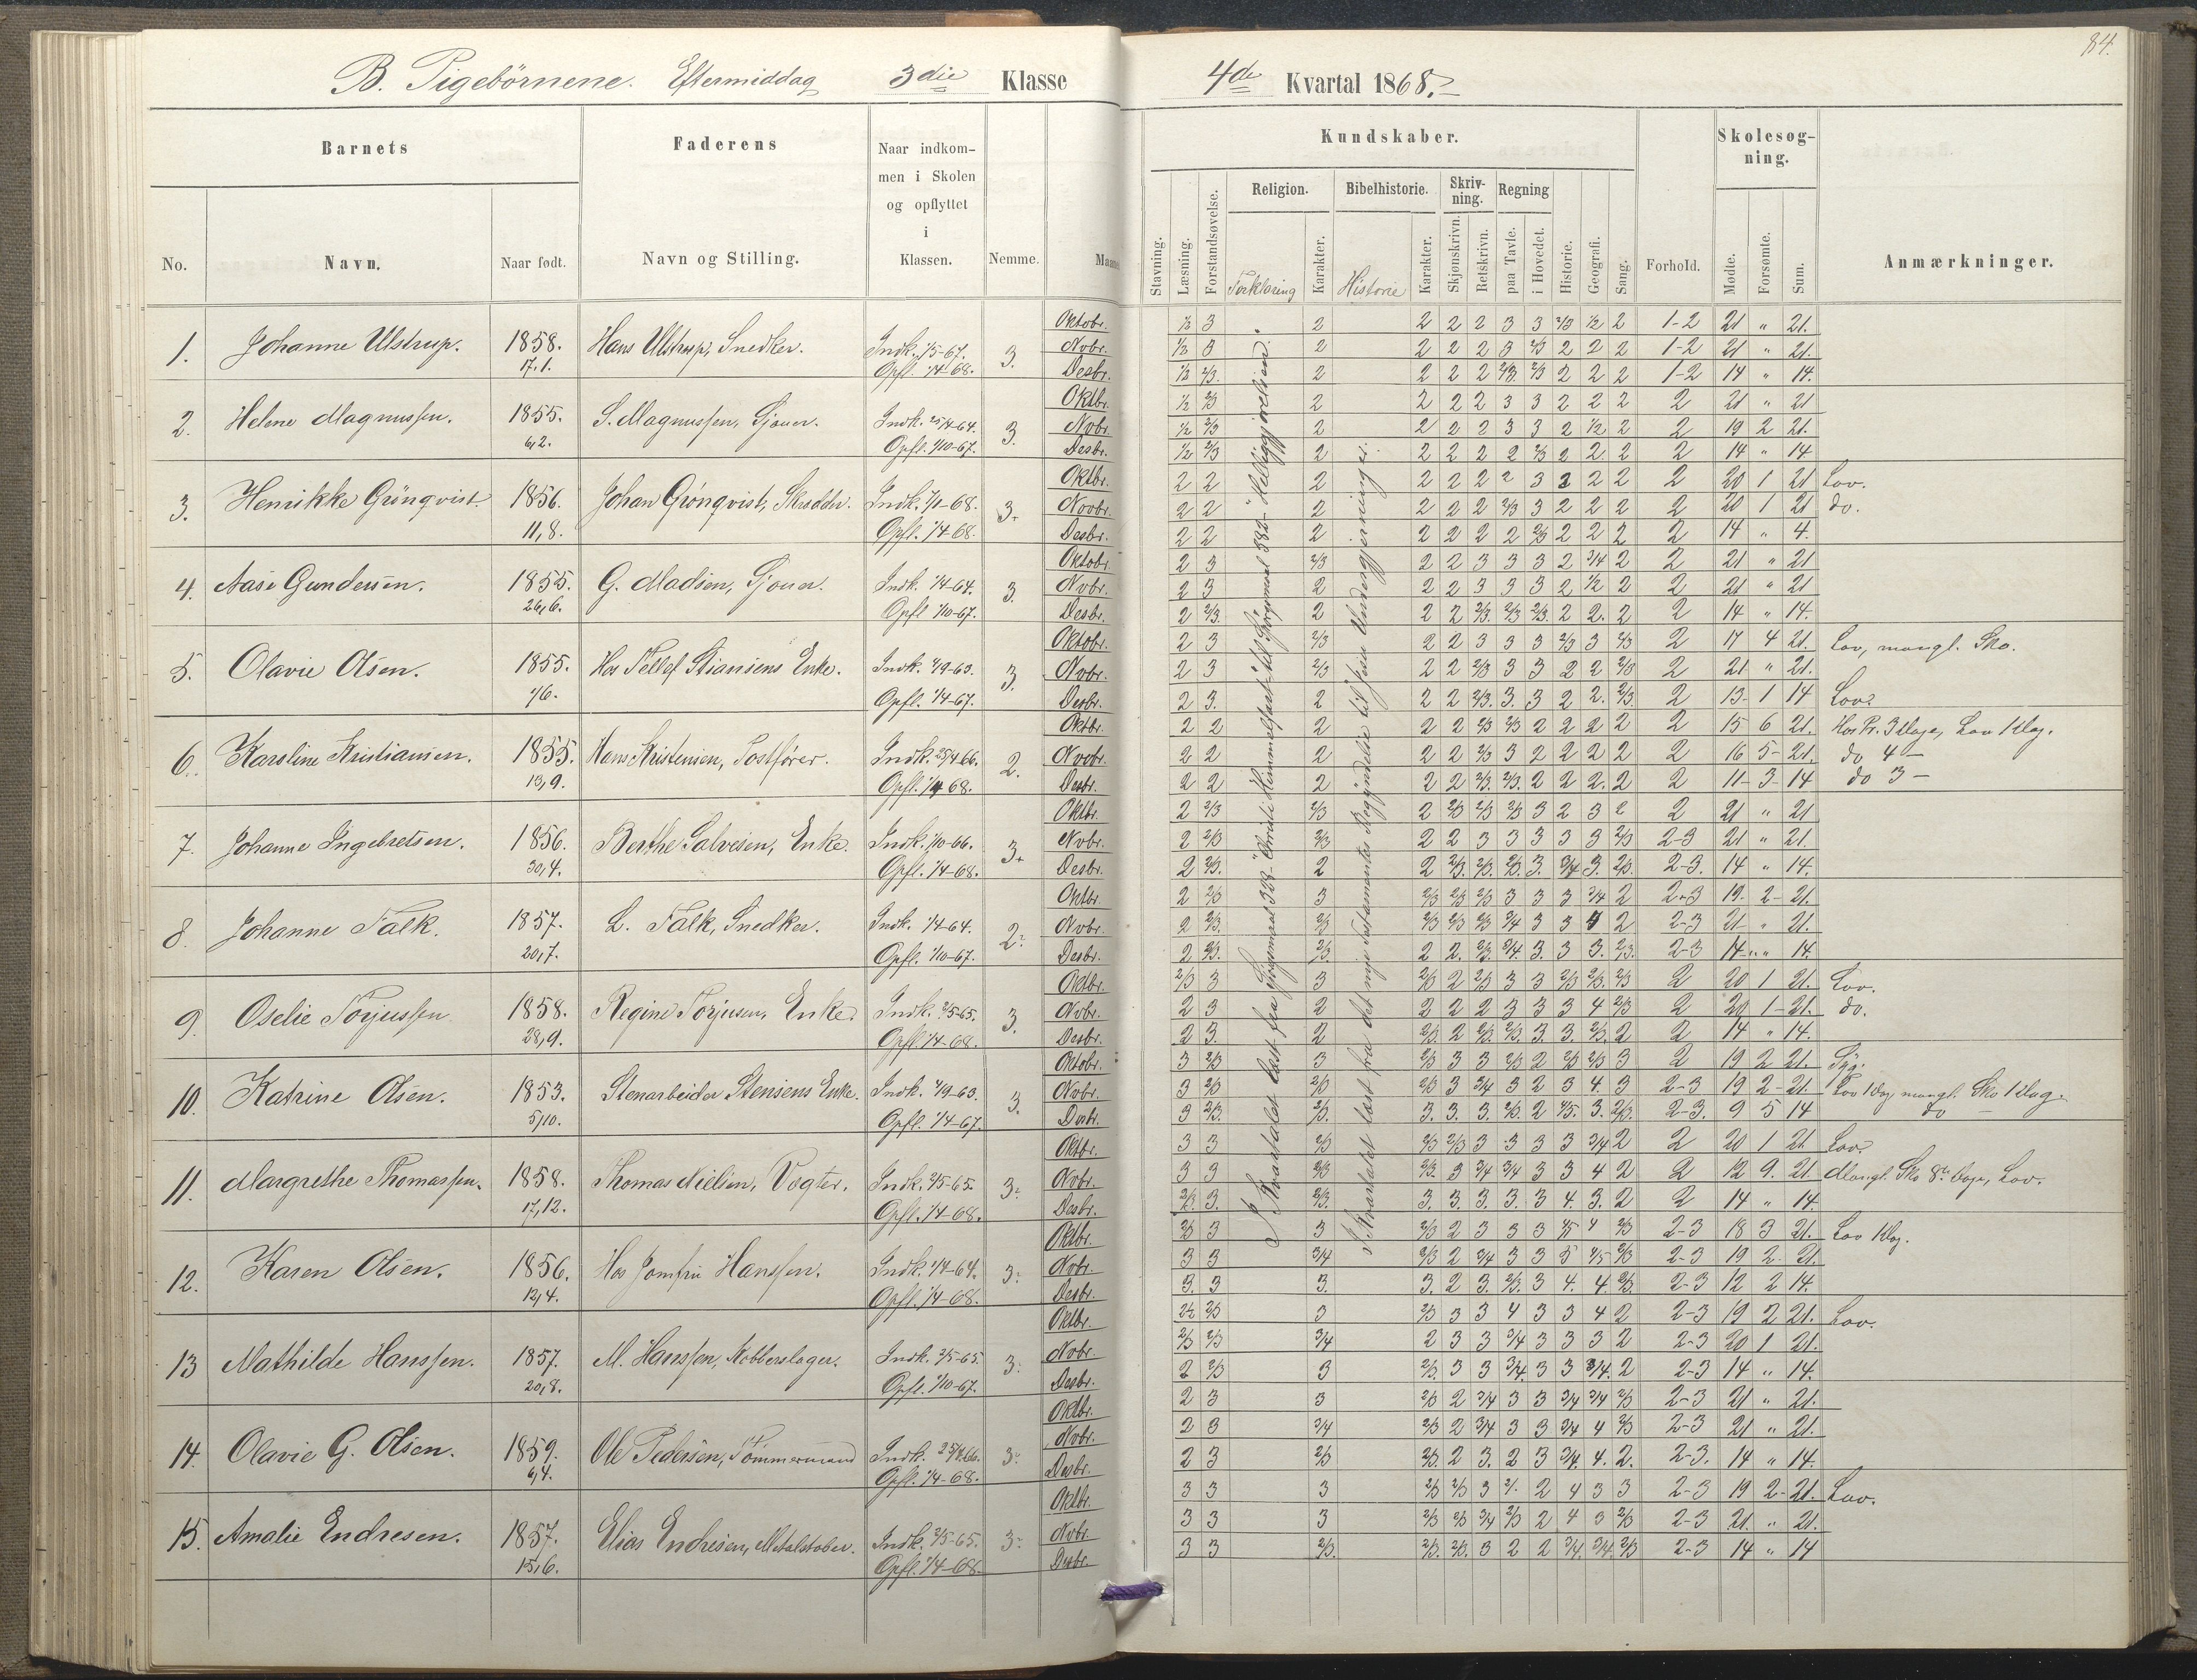 84.
B. Pigebørnene. Eftermiddag 3die Klasse
4de Kvartal 1868.
Barnets
Faderens
Naar indkommen i Skolen og opflyttet i Klassen.
Nemme.
Kundskaber.
Forhold.
Skolesøgning.
Anmærkninger.
No.
Navn.
Naar født.
Navn og Stilling.
Stavning.
Læsning.
Forstandsøvelse.
Religion.
Forklaring
Karakter.
Bibelhistorie.
Historie
Karakter.
Skrivning.
Skjønskrivn.
Retskrivn.
Regning
paa Tavle.
i Hovedet.
Historie.
Geografi.
Sang.
Mødte.
Forsømte.
Sum.
1. Johanne Ulstrup. 1858. 17,1. Hans Ulstrup, Snedker. Indk. 1/5-67. Opfl. 1/4-68. 3.
Oktobr. 1/2 3 2 2 2 2 3 3 2/3 1/2 2 1-2 21 " 21.
Nobr. 1/2 3 2 2 2 2 3 2/3 2 2 2 1-2 21 " 21.
Desbr. 1/2 2/3. 2 2 2 2 2/3. 2/3 2 2 2 1-2 14 " 14.
2. Helene Magnussen. 1855. 6,2. S. Magnussen, Sjouer. Indk. 25/4-64. Opfl. 1/10-67. 3.
Oktbr. 1/2 2/3 2 2 2 2 3 3 2 2 2 2 21 " 21
Nobr. 1/2 2/3 2 2 2 2 3 3 2 1/2 2 2 19 2 21.
Desbr. 1/2 2/3 2 2 2 2 2 2/3 2 2 2 2 14 " 14
3. Henrikke Grönqvist. 1856. 11,8. Johan Grönqvist, Skrædder. Indk. 7/1-68. Opfl. 1/4-68. 3.
Oktbr. 2 2 2 2 2 2 2 3 2 2 2 2 20 1 21 Lov.
Novbr. 2 2 2 2 2 2 2/3 3 2 2 2 2 20 1 21 do.
Desbr. 2 2 2 2 2 2 2 2/3 2 2 2 2 14 " 4.
4. Aase Gundersen. 1855. 26,6. G. Madsen, Sjouer. Indk. 1/4-64. Opfl. 1/10-67. 3.
Oktobr. 2 3 2/3 2 2 3 3 3 2 3/4 2 2 21 " 21
Nobr. 2 3 2 2 2 3 3 3 2 1/2 2 2 21 " 21
Desbr. 2 2/3. 2 2 2 2/3. 2/3 2/3. 2 2. 2 2 14 " 14.
5. Olavie Olsen. 1855. 1/6. Hos Tellef Stiansens Enke. Indk. 1/9-63. Opfl. 1/4-67. 3.
Oktobr. 2 3 2/3 2 2 3 3 3 2/3 3 2/3 2 17 4 21. Lov, mangl. Sko.
Nobr. 2 3 2/3 2 2 2/3 3 3 2 2 2/3 2 21 " 21.
Desbr. 2 3. 2 2 2 2/3. 3. 3 2 2. 2/3. 2 13 1 14 Lov.
6. Karoline Kristiansen. 1855. 13,9. Hans Kristensen, Postfører. Indk. 25/4 66. Opfl. 1/4 68. 2.
Oktbr. 2 2 2 2 2 2/3 2/3 2 2 2 2 2 15 6 21. Hos Pr. 3 Dage, Lov 1 Dag.
Novbr. 2 2 2 2 2 2/3 3 2 2 2 2 2 16 5 21. do 4 -
Desbr. 2 2 2 2 2 2/3. 2/3. 2 2 2. 2 2 11 3 14 do 3 -
7. Johanne Ingebretsen. 1856. 30,4. Berthe Salvesen, Enke. Indk. 1/10-66. Opfl. 1/4-68. 3+
Oktbr. 2 2/3 2/3 2 2/3 2/3 2/3 3 2 3 2 2 21 " 21
Nvbr. 2 2/3 2/3 2 2 3 3 3 3 3 2/3 2-3 21 " 21.
Desbr. 2 2/3. 2 2 2/3. 2/3. 2/3. 3. 3/4 3. 2/3. 2-3. 14 " 14.
8. Johanne Falk. 1857. 20,7. L. Falk, Snedker. Indk. 1/4-64. Opfl. 1/10-67. 2.
Oktbr. 2 2/3 3 2/3 2/3 2/3 3 3 3 3/4 2 2-3 19. 2 21.
Nvbr. 2 2/3. 2/3 2/3 2/3 2/3 3/4 3 3 4 2 2-3 21 " 21.
Desbr. 2 2/3. 2/3. 2 2. 2/3. 3/4. 3. 3 3. 2/3. 2-3 14 " 14.
9. Oselie Torjussen 1858. 28,9. Regine Torjusen, Enke. Indk. 2/5-65. Opfl. 1/4-68. 3.
Oktbr. 2/3 3 3 2/3 2 2/3 3 3 2/3 2/3. 2/3 2 20 1 21. Lov.
Nvbr. 2 3 2 2 2 2 3 3 3 4 2/3 2 20 1 21. do.
Desbr. 2 3. 2 2/3. 2 2/3. 2/3. 3. 3. 2/3. 2 2 14 " 14.
10. Katrine Olsen. 1853. 5,10. Stenarbeider Stensens Enke. Indk. 1/9-63. Opfl. 1/4-67. 3.
Oktobr. 3 2/3 3 2/3 3 3 2/3 2 2/3 2/3 3 2 19 2 21. Syg.
Nvbr. 3 2/3 2/3 2/3 3 3/4 3 2 3 4 3 2-3 19 2 21. Lov 1 Dag, mangl. Sko 1 Dag.
Desbr. 3 2/3. 2/3. 3. 3. 3. 2/3. 2 4/5. 3. 2/3. 2-3. 9 5 14 do -
11. Margrethe Thomassen. 1858. 17,12. Thomas Nielsen, Vogter. Indk. 2/5-65. Opfl. 1/4-68. 3.
Oktbr. 3 3 2/3 2/3 2/3 3 3 3 3 3/4 2 2 20 1 21 Lov.
Nvbr. 3 3 2/3 2/3. 3 3/4 3/4 3 3 4 2 2 12 9. 21 Mangl. Sko 8te Dage, Lov.
Desbr. 2/3. 3. 2/3. 3. 3. 3. 3. 3 4. 3. 2 2 14 " 14.
12. Karen Olsen. 1856. 12,4. Hos Jomfru Hanssen. Indk. 1/4-64. Opfl. 1/4-68. 3.
Oktbr. 2/3 3 3 2/3 2 3 3 3 4/5 4 2/3 2-3 18 3 21. Lov 1 Dag.
Nvbr. 3 3 3/4 2/3 2 3/4 3 3 5 4/5 2/3 2-3 19 2 21.
Desbr. 3. 3 3. 3. 2 3. 2/3. 3 4. 4. 2/3. 2-3 12 2 14.
13 Mathilde Hanssen. 1857. 20,8. M. Hanssen, Kobberslager. Indk. 2/5-65. Opfl. 1/10-67. 3.
Oktbr. 2/3 3 2/3 3 3 4 3 3 4 2 2-3 19 2 21. Lov.
Nvbr. 2/3 2/3 3/4 2 3 3 3/4 3 3 3 2 2-3 20 1 21.
Desbr. 2 2/3 3 2/3. 3 3 3/4. 3 3 3/4. 2 2-3 14 " 14.
14. Olavie G. Olsen. 1859. 6,4. Ole Pedersen, Tømmermand Indk. 25/4 66. Opfl. 1/4-68. 3.
Oktbr. 2 3 3 2/3 2 3/4 3 3 3/4 3/4 2/3 2-3 21 " 21.
Nvbr. 2 3 3/4 2/3 2 3/4 3 3 3/4 4 2/3 2-3 21 " 21.
Desbr. 2 3 2/3 2/3. 2 3. 2 3 3/4. 4. 2. 2-3. 14 " 14.
15. Amalie Endresen. 1857. 15,6. Elias Endresen, Metalstøber. Indk. 2/5-65. Opfl. 1/4-68. 3.
Oktbr. 3 3 3 2/3 2/3 3 2 4 3 3 2-3 19 2 21. Lov.
Nvbr. 3 3 3 2/3 2/3 3/4 2/3 2 4 3 2/3 2-3 21. " 21.
Desbr. 3 3 2/3. 2/3. 2/3. 3 2 2 3/4. 3/4. 2/3 2-3 14 " 14
I Kvartalet læst fra Spørgsmaal 338 "Christi Himmelfart" til Spørgsmaal 382 "Helliggjørelsen".
I Kvartalet læst fra det nye Testamentes Begyndelse til Jesu Undergjerninger.